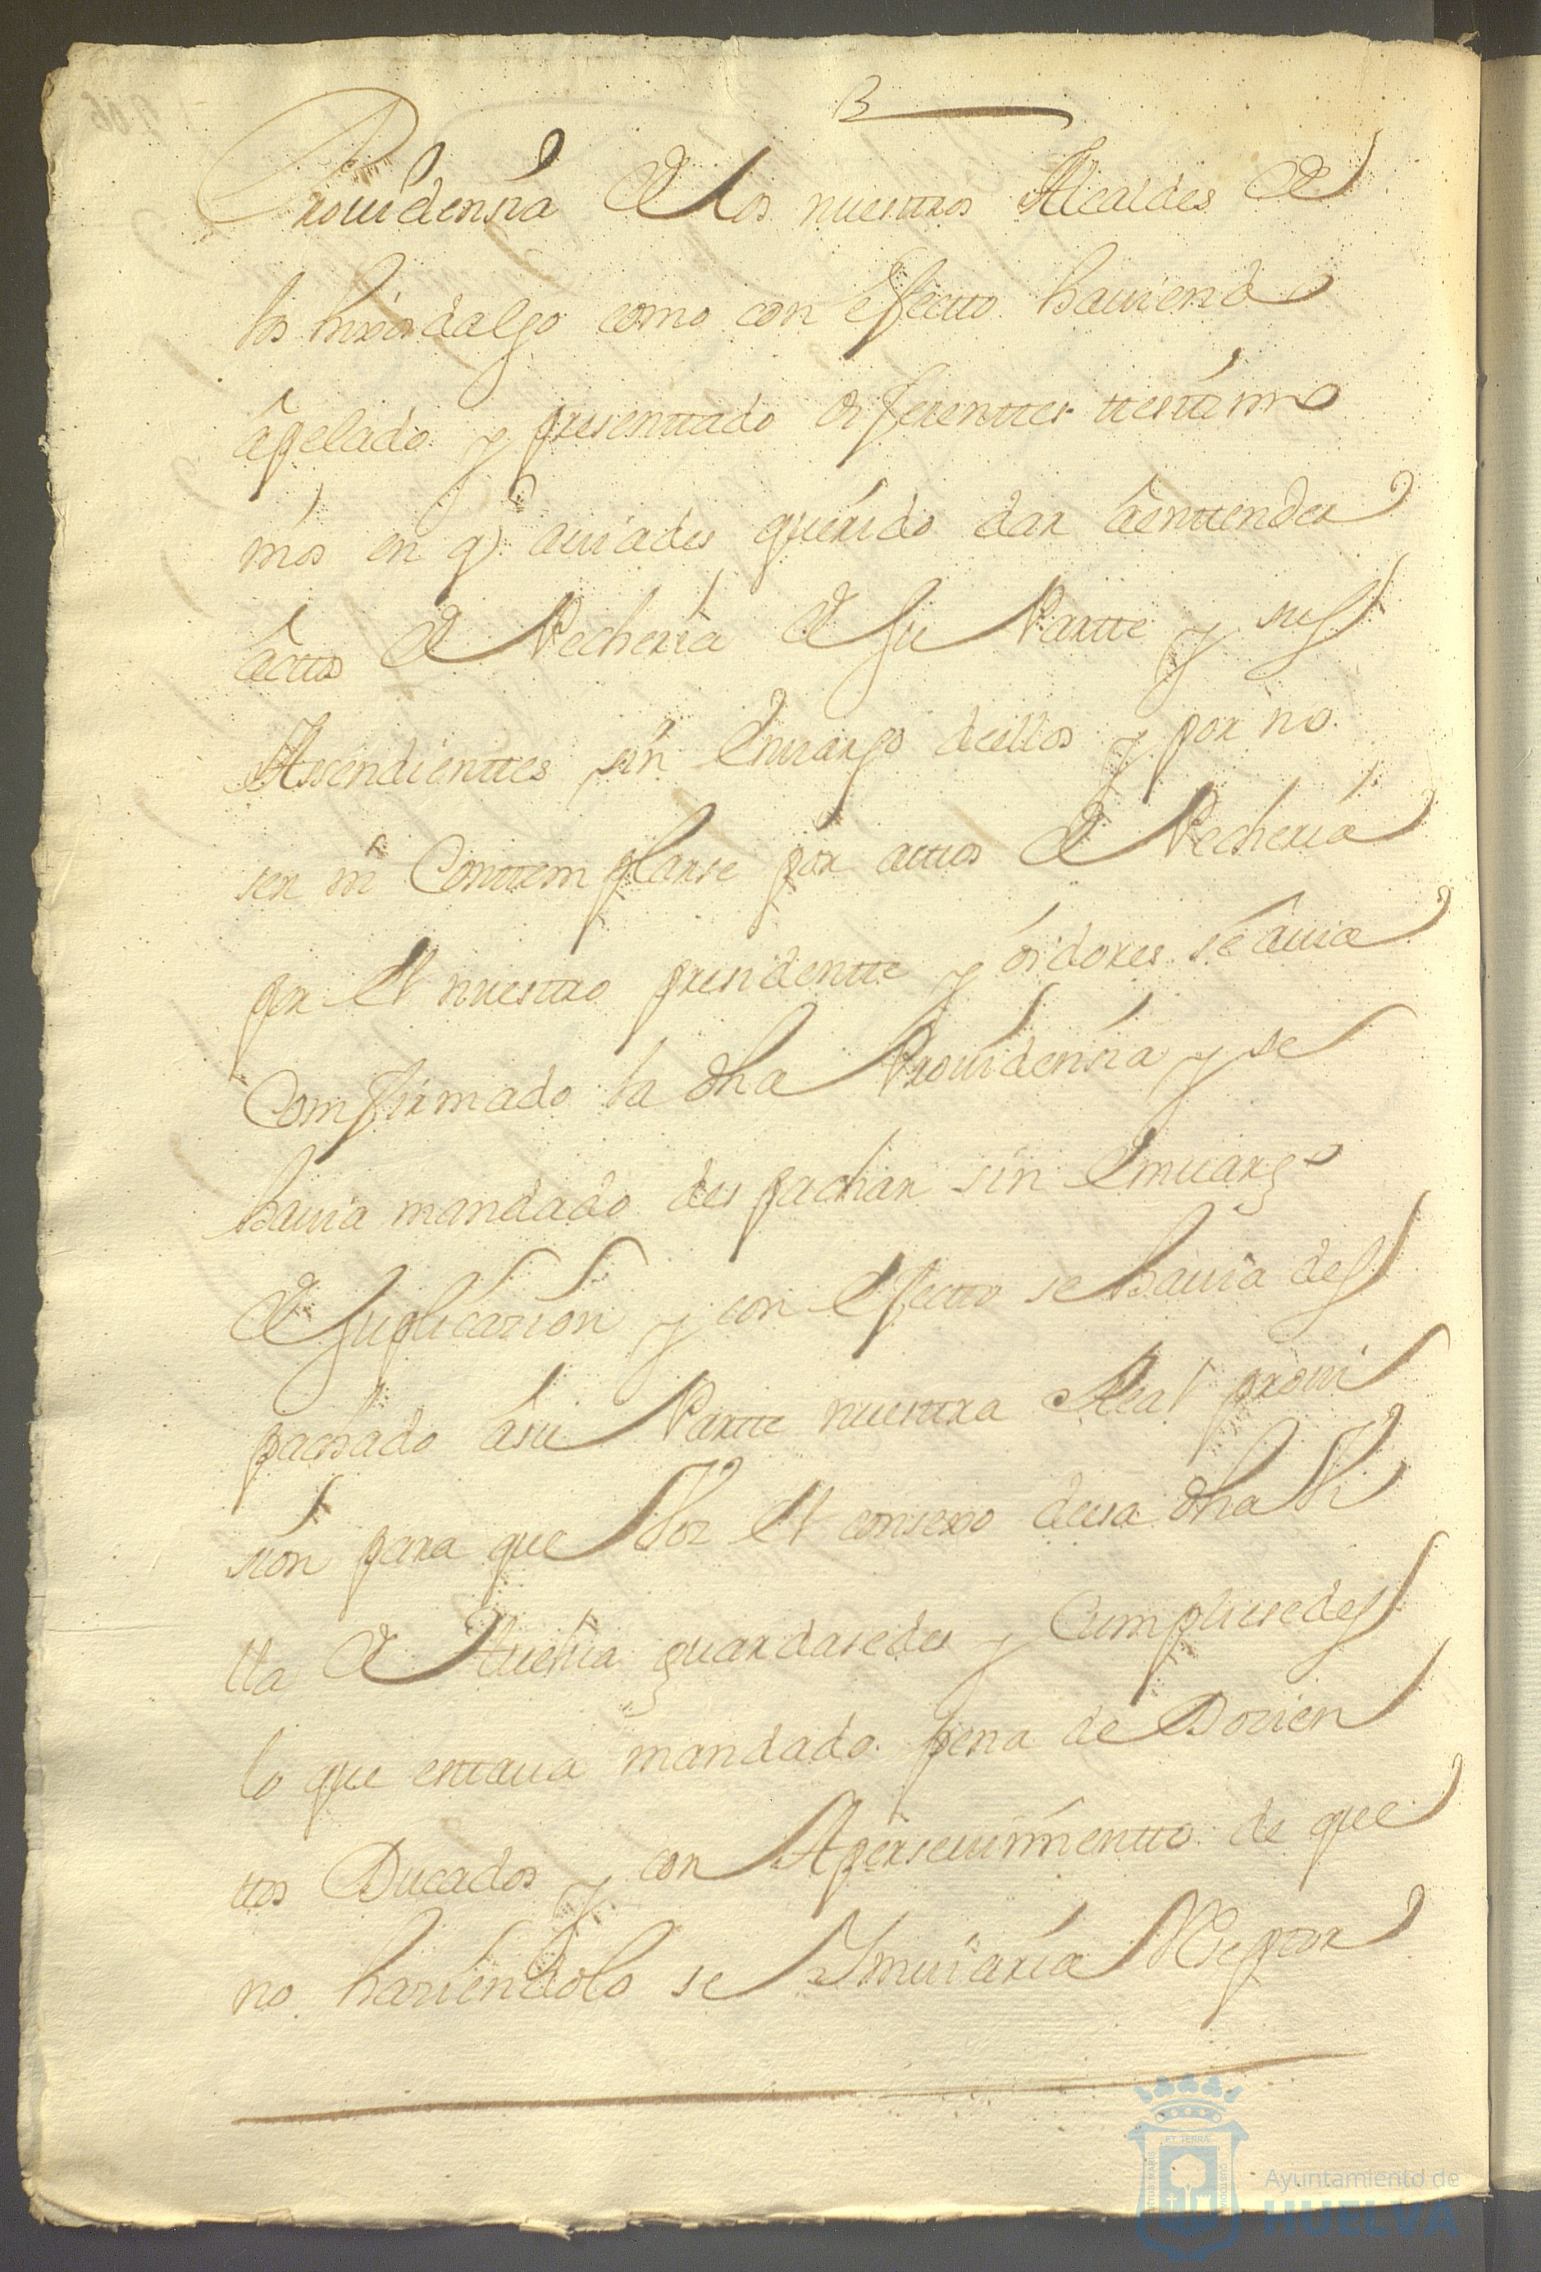 Providensia de los nuestros Alcaldes de
los hixosdalgo como con efectto haviendo
apelado y presenttado diferenttes ttestimo
nios en q aviades querido dar a enttender
acttos de Pecheria de su Partte y sus
Asendienttes sin Envargo de ellos y por no
ser ni Conttemplarse por acttos de Pecheria
por el nuestro presidentte y oidores se avia
Comfirmado la dha Providensia y se
havia mandado despachar sin Emvargo
de suplicazion y con Efectto se havia des
pachado a su Partte nuestra Real provi
sion para que Vos el consexo de esa dha Vi
lla de Huelva guardasedes y Cumpliesedes
lo que esttava mandado pena de Dozien
ttos Ducados y con Apersevimientto de que
no haziendolo se Imviaria Reseptor
Ayuntamiento de
HUELVA